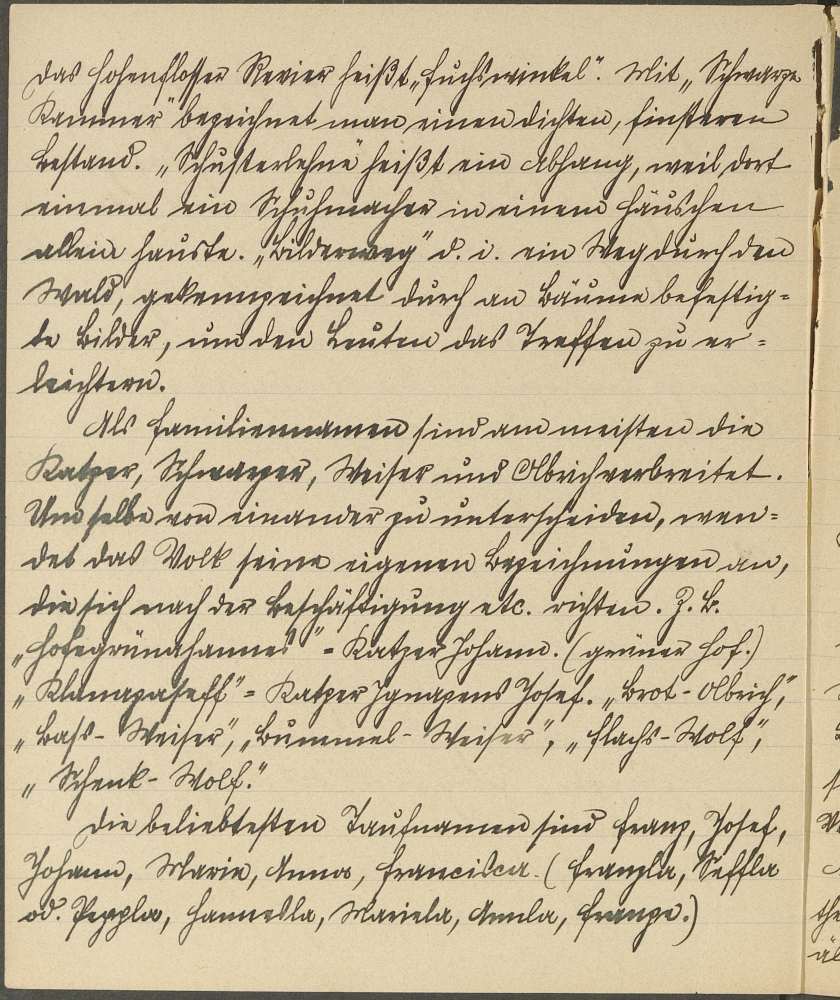 Das Hohenflosser Revier heißt „Fuchswinkel“. Mit „Schwarze
Kammer“ bezeichnet man einen dichten, finsteren
Bestand. „Schusterlehne“ heißt ein Abhang, weil dort
einmal ein Schuhmacher in einem Häuschen
allein hauste. „Bilderweg“ d. i. ein Weg durch den
Wald, gekennzeichnet durch an Bäume befestig=
te Bilder, um den Leuten das Treffen zu er=
leichtern.
Als Familiennamen sind am meisten die
Katzer, Schwarzer, Weiser und Olbrich verbreitet.
Um selbe von einander zu unterscheiden, wen=
det das Volk seine eigenen Bezeichnungen an,
die sich nach der Beschäftigung etc. richten. Z. B.
„Hofegrünahannes“ = Katzer Johann. (grüner Hof.)
= Katzer Ignazens Josef. „Brot-Olbrich“,
„Bass-Weiser“, „Bummel-Weiser“, „Flachs-Wolf“,
„Schenk-Wolf.“
Die beliebtesten Taufnamen sind Franz, Josef,
Johann, Marie, Anna, Francisca. (Franzla, Seffla
od. Peppla, Hannesla, Mariela, Annla, Franze.)